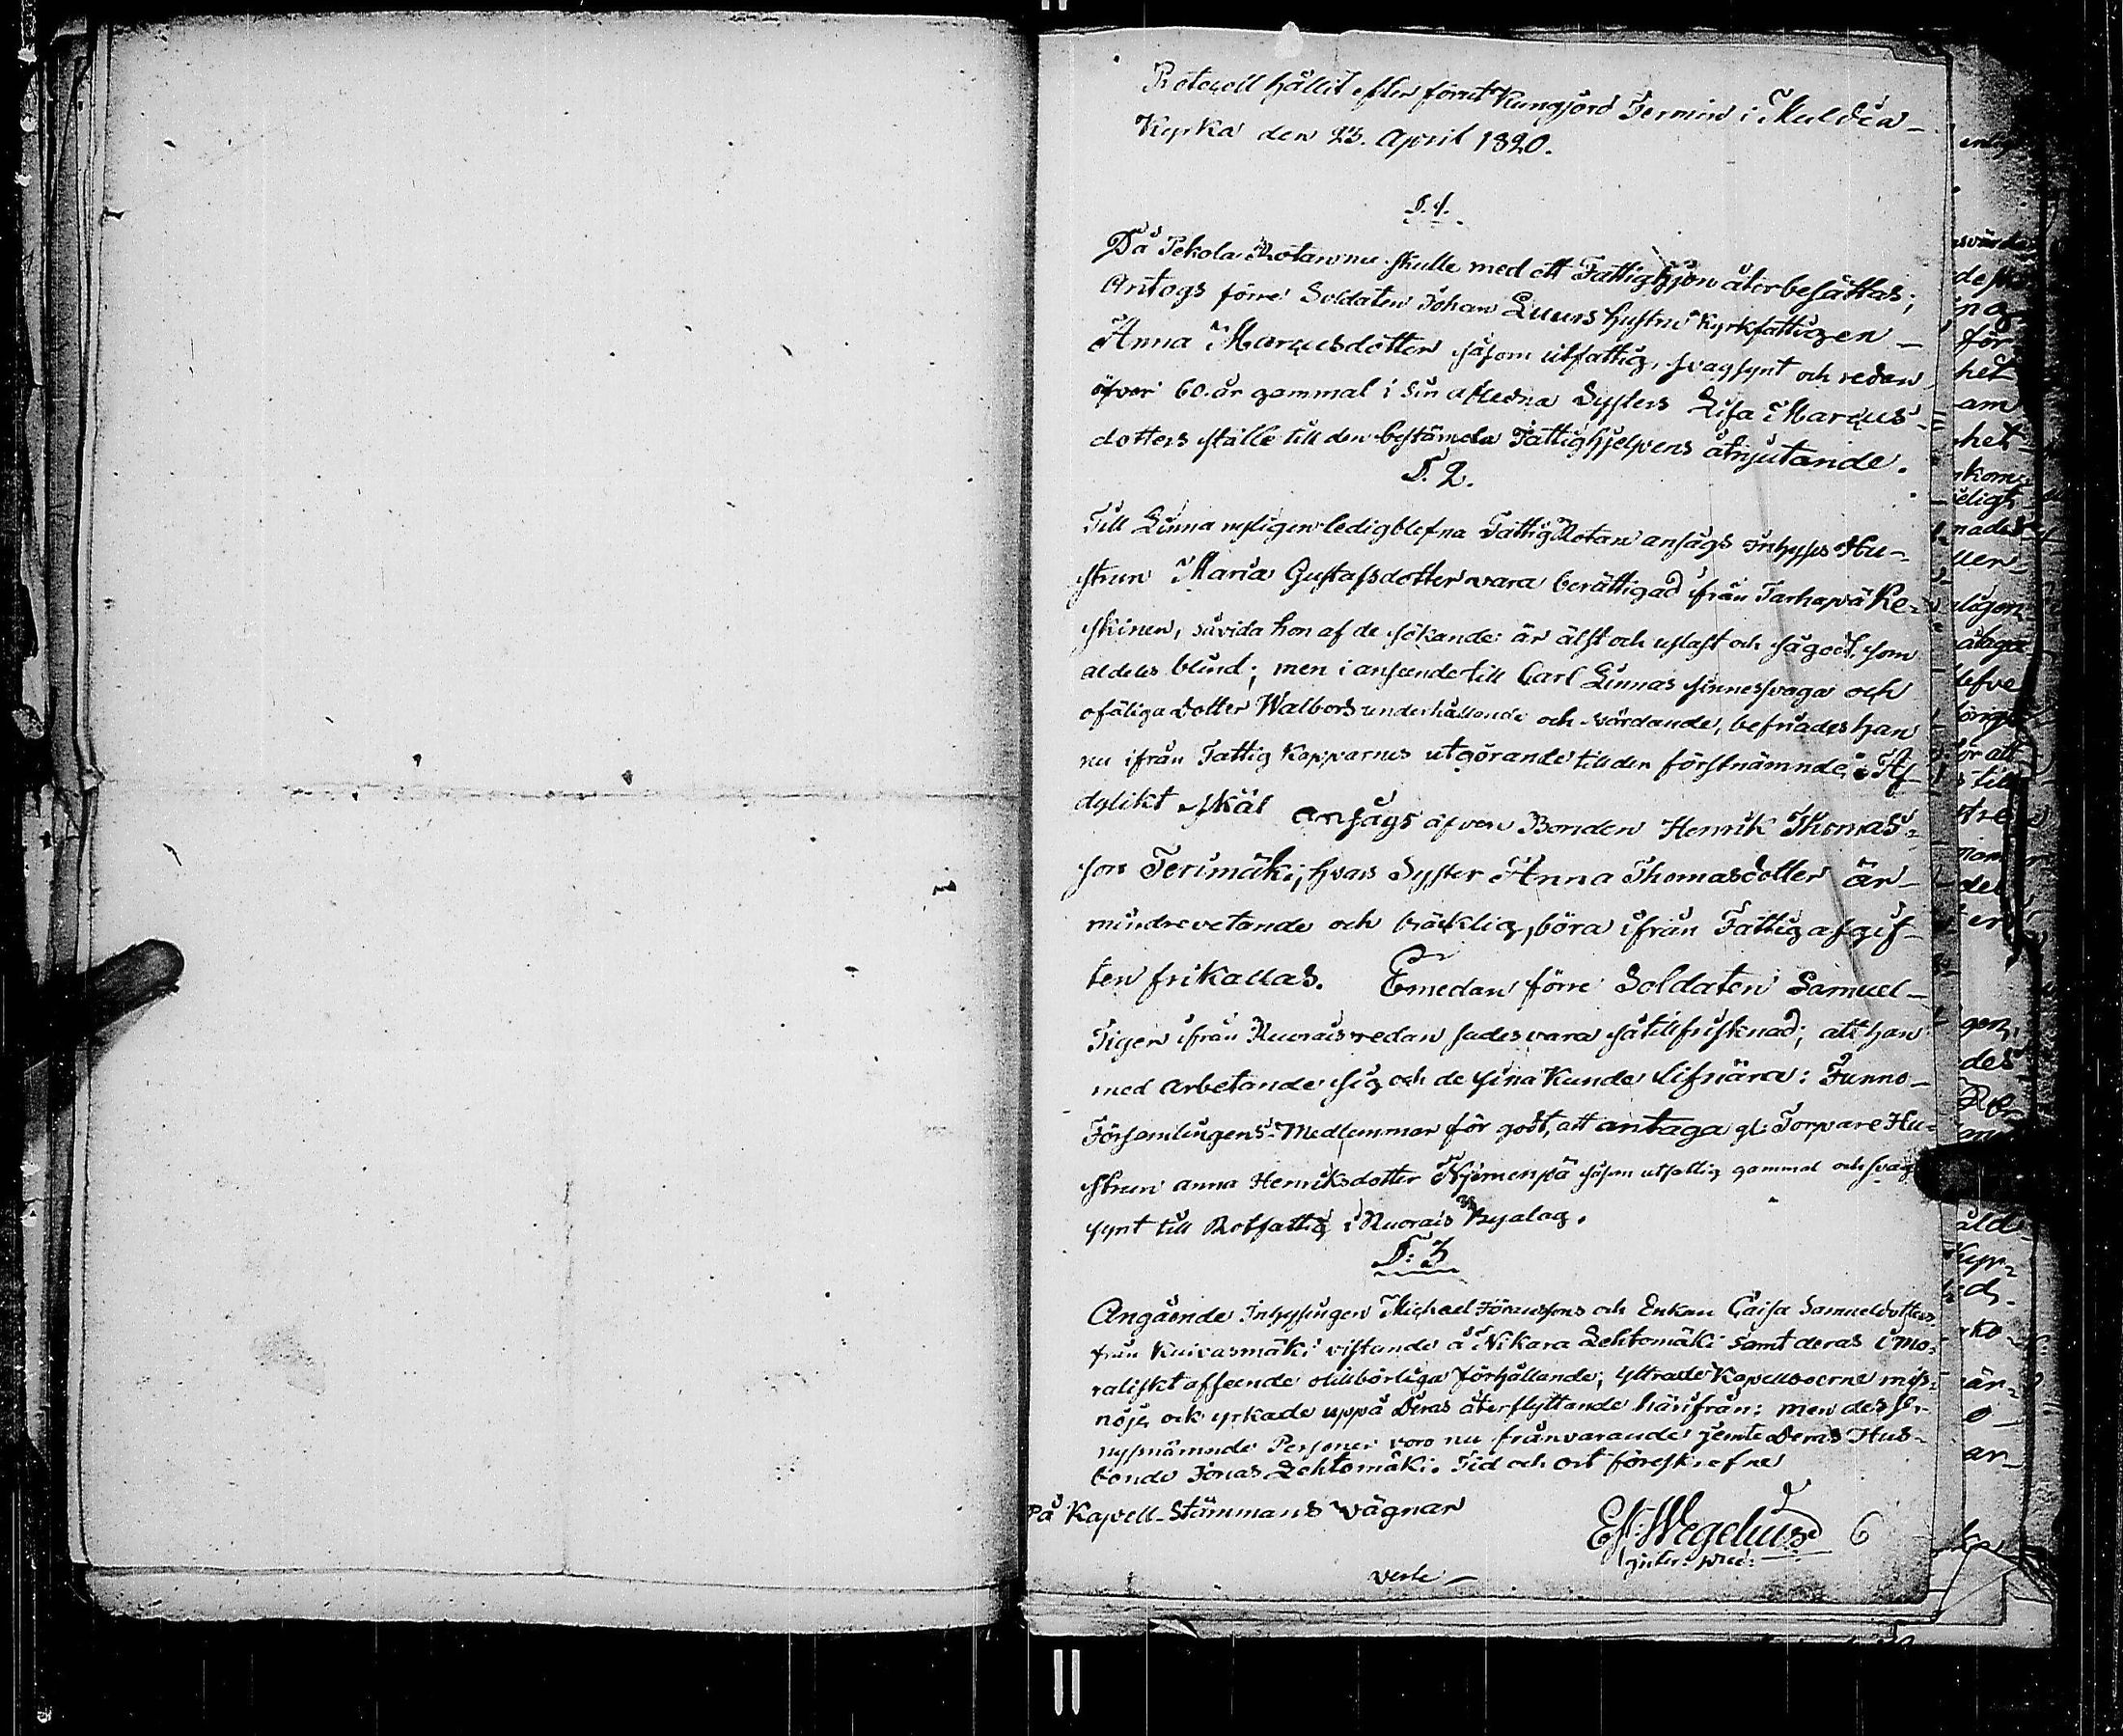 Protocoll hållit efter förut Kungjord Termin i Muldia
Kyrka den 23. April 1820.
§. 1.
Då Pekola Rotarne skulle med ett Fattighjon återbesättas;
Antogs förre Soldaten Johan Luurs hustru Kyrkfattigen
Anna Marcusdotter såsom utfattig, svagsynt och redan
öfver 60. år gammal i Sin aflledna Systers Lisa Marcus-
dotters ställe till den bestämda Fattighjelpens åtnjutande.
§. 2.
Till Linna nyligen ledigblefna Fattig Rotan ansågs Inhyses Hu-
strun Maria Gustafsdotter vara berättigad från Tarhapä Ke-
skinen, såvida hon af de sökande är älst och uslast och så godt som
aldeles blind; men i anseende till Carl Linnas sinnessvaga och
ofäliga dotter Walbors underhållande och vårdande, befriades han
nu ifrån Fattig Kapparnes utgörande till den förstnämnde. Af
dylikt skäl ansågs äfven Bonden Henrik Thomas-
son Terimäki, hvars Syster Anna Thomasdotter är
mindrevetande och bräcklig, böra ifrån Fattigafgif-
ten frikallas. Emedan förre Soldaten Samuel
Tiger ifrån Ruorais redan sades vara så tillfrisknad; att han
med arbetande sig och de sina kunde lifnära: Funno
Församlingens Medlemmar för godt, att antaga gl: Torpare Hu-
strun Anna Henriksdotter såsom utfattig gammal och svag-
synt till Rotfattig i Ruorais Byalag.
§: 3
Angående Inhysingen Michael Göranssons och Enkan Caisa Samuelsdotters
från Kuivasmäki vistande å Nikara Lehtomäki samt deras i mo-
raliskt afseende otillbörliga förhållande; yttrade Kapellboerne miss-
nöje och yrkade uppå Deras återflyttande härifrån: men desse
nyssnämnde Personer voro nu frånvarande jemte Deras Hus-
bonde Jonas Lehtomäki. Tid och ort föreskrefne
På Kapell-Stämmans vägnar
Wegelius 6
verte